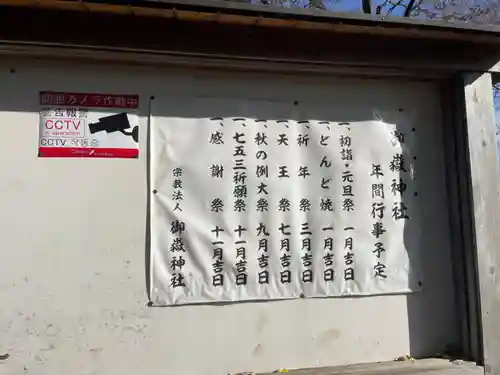 御嶽神社
年間行事予定
一、初詣・元旦祭 一月吉日
一、どんど焼 一月吉日
一、祈年祭 三月吉日
一、天王祭 七月吉日
一、秋の例大祭 九月吉日
一、七五三祈願祭 十一月吉日
一、感謝祭 十一月吉日
宗教法人 御嶽神社
防犯カメラ作動中
CCTV
in operation
CCTV